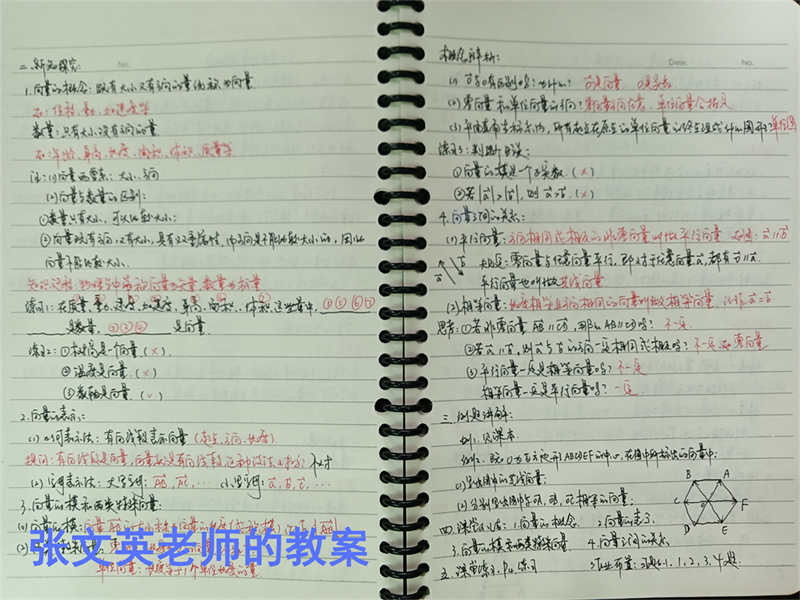 二. 新知探究: No.
1. 向量的概念: 既有大小又有方向的量叫做向量
如: 位移、力、加速度等
数量: 只有大小没有方向的量
如: 年龄、身高、长度、面积、体积、质量等
注: (1) 向量两要素: 大小、方向
(2) 向量与数量的区别:
① 数量只有大小, 可以比较大小;
② 向量既有方向, 又有大小, 具有双重属性, 而方向是不能比较大小的, 因此
向量不能比较大小。
练习1: 在质量、力、速度、加速度、身高、面积、体积这些量中,
是数量, ②③④ 是向量
练习2: ① 身高是一个向量 (×)
② 温度是向量 (×)
③ 数轴是向量
2. 向量的表示:
(1) 几何表示法: 有向线段表示向量 (起点、方向、长度)
提问: 有向线段是向量, 向量就是有向线段, 这种说法对吗? 不对
(2) 字母表示法: 大写字母:
3. 向量的模和两类特殊向量:
(1) 向量的模:
单位向量: 长度等于1个单位长度的量
张文英老师的教案
概念辨析: Date. No.
(2) 零向量和单位向量的方向? 零向量方向任意、单位向量
(3) 平面直角坐标系内, 所有起点在原点的单位向量的终点组成什么图形? 单位圆
练习3: 判断正误:
① 向量的模是一个正实数. (×)
② 若 |a|>|b|, 则 a>b. (×)
4. 向量之间的关系:
(1) 平行向量: 方向相同或相反的非零向量叫做平行向量 记作: a∥b
规定: 零向量与任意向量平行, 即对于任意向量a, 都有 0∥a.
平行向量也叫做共线向量
(2) 相等向量: 长度相等且方向相同的向量叫做相等向量 记作: a=b
思考: ① 若非零向量 AB∥CD, 那么 AB∥CD吗? 不一定
② 若 a∥b, 则 a与b的方向一定相同或相反吗? 不一定, 如零向量
③ 平行向量一定是相等向量吗? 不一定
相等向量一定是平行向量吗? 一定
三. 例题讲解:
例1. 见课本
例2. 设O为正六边形ABCDEF的中心, 在图中所标出的向量中:
(1) 写出图中的共线向量;
(2) 分别写出图中与 相等的向量;
B A
C O F
D E
四. 课堂小结: 1. 向量的概念 2. 向量的表示
3. 向量的模和两类特殊向量 4. 向量之间的关系
五. 课堂练习: P4 练习 作业布置: 习题6.1, 1、2、3、4题